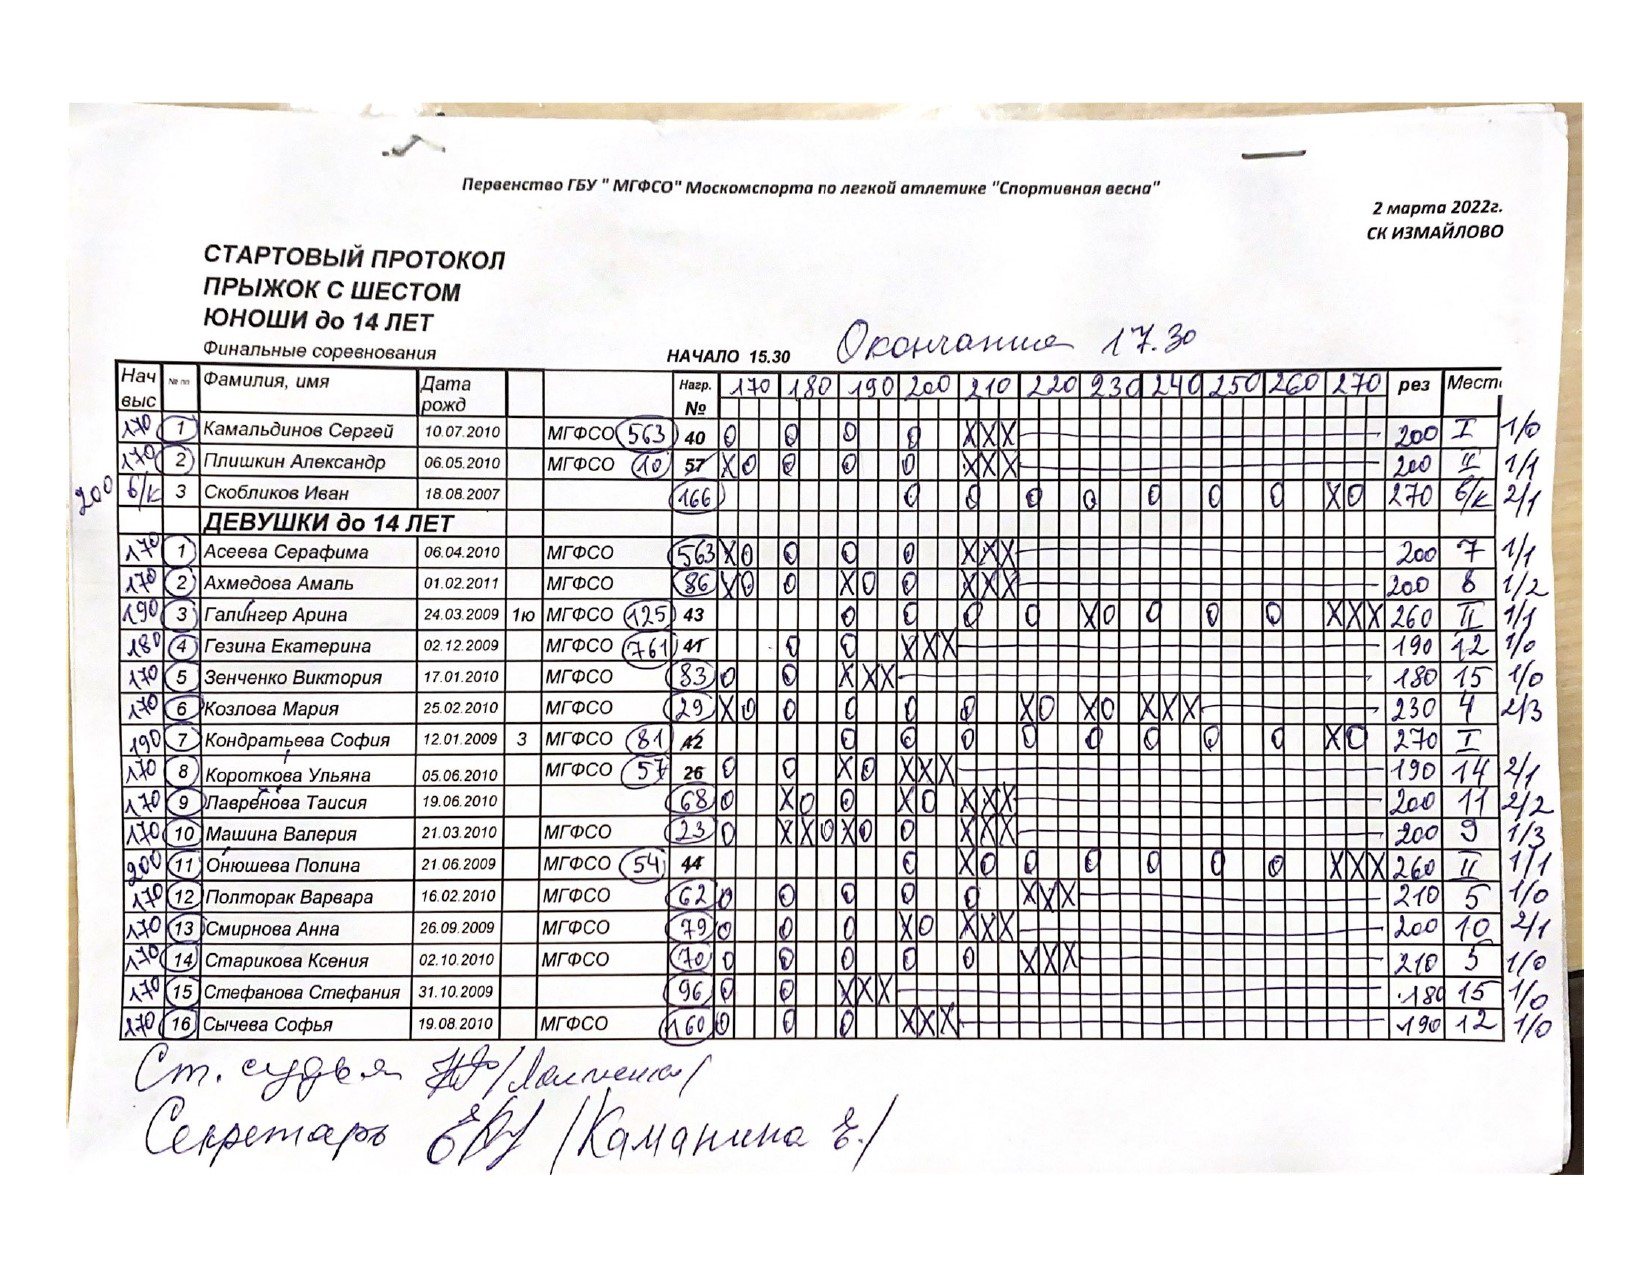 Первенство ГБУ " МГФСО" Москомспорта по легкой атлетике "Спортивная весна"
2 марта 2022г.
СК ИЗМАЙЛОВО
СТАРТОВЫЙ ПРОТОКОЛ
ПРЫЖОК С ШЕСТОМ
ЮНОШИ до 14 ЛЕТ
Финальные соревнования НАЧАЛО 15.30 Окончание 17.30
Нач выс № пп Фамилия, имя Дата рожд Нагр. № 170 180 190 200 210 220 230 240 250 260 270 рез Место
170 1 Камальдинов Сергей 10.07.2010 МГФСО 563 40 O O O O XXX 200 I 1/0
170 2 Плишкин Александр 06.05.2010 МГФСО 10 57 XO O O O XXX 200 II 1/1
200 б/к 3 Скобликов Иван 18.08.2007 166 O O O O O O O XO 270 б/к 2/1
ДЕВУШКИ до 14 ЛЕТ
170 1 Асеева Серафима 06.04.2010 МГФСО 563 XO O O O XXX 200 7 1/1
170 2 Ахмедова Амаль 01.02.2011 МГФСО 86 XO O XO O XXX 200 8 1/2
190 3 Галингер Арина 24.03.2009 1ю МГФСО 125 43 O O O O XO O O O XXX 260 II 1/1
180 4 Гезина Екатерина 02.12.2009 МГФСО 761 41 O O XXX 190 12 1/0
170 5 Зенченко Виктория 17.01.2010 МГФСО 83 O O XXX 180 15 1/0
170 6 Козлова Мария 25.02.2010 МГФСО 29 XO O O O O XO XO XXX 230 4 2/3
190 7 Кондратьева София 12.01.2009 3 МГФСО 81 42 O O O O O O O O XO 270 I
170 8 Короткова Ульяна 05.06.2010 МГФСО 57 26 O O XO XXX 190 14 2/1
170 9 Лавренова Таисия 19.06.2010 68 O XO O XO XXX 200 11 2/2
170 10 Машина Валерия 21.03.2010 МГФСО 23 O XXO XO O XXX 200 9 1/3
200 11 Онюшева Полина 21.06.2009 МГФСО 54 44 O XO O O O O O XXX 260 II 1/1
170 12 Полторак Варвара 16.02.2010 МГФСО 62 O O O O O XXX 210 5 1/0
170 13 Смирнова Анна 26.09.2009 МГФСО 79 O O O XO XXX 200 10 2/1
170 14 Старикова Ксения 02.10.2010 МГФСО 70 O O O O O XXX 210 5 1/0
170 15 Стефанова Стефания 31.10.2009 96 O O XXX 180 15 1/0
170 16 Сычева Софья 19.08.2010 МГФСО 160 O O O XXX 190 12 1/0
Ст. судья
Секретарь /Каманина Е./